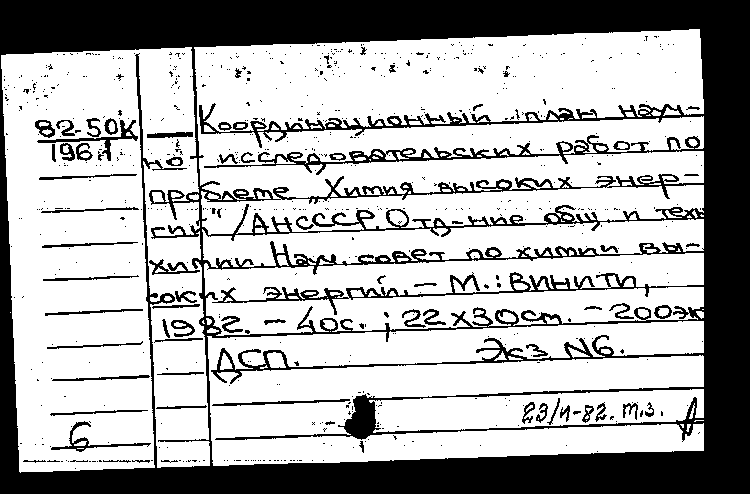 82-50К
1961
Координационный план науч-
но-исследовательских работ по
проблеме „Химия высоких энер-
гий" / АН СССР. Отд-ние общ. и техн.
химии. Науч. совет по химии вы-
соких энергий. – М.: ВИНИТИ,
1982. – 40с. ; 22х30см. – 200эк
ДСП. Экз N6.
6
23/II-82. т.з.